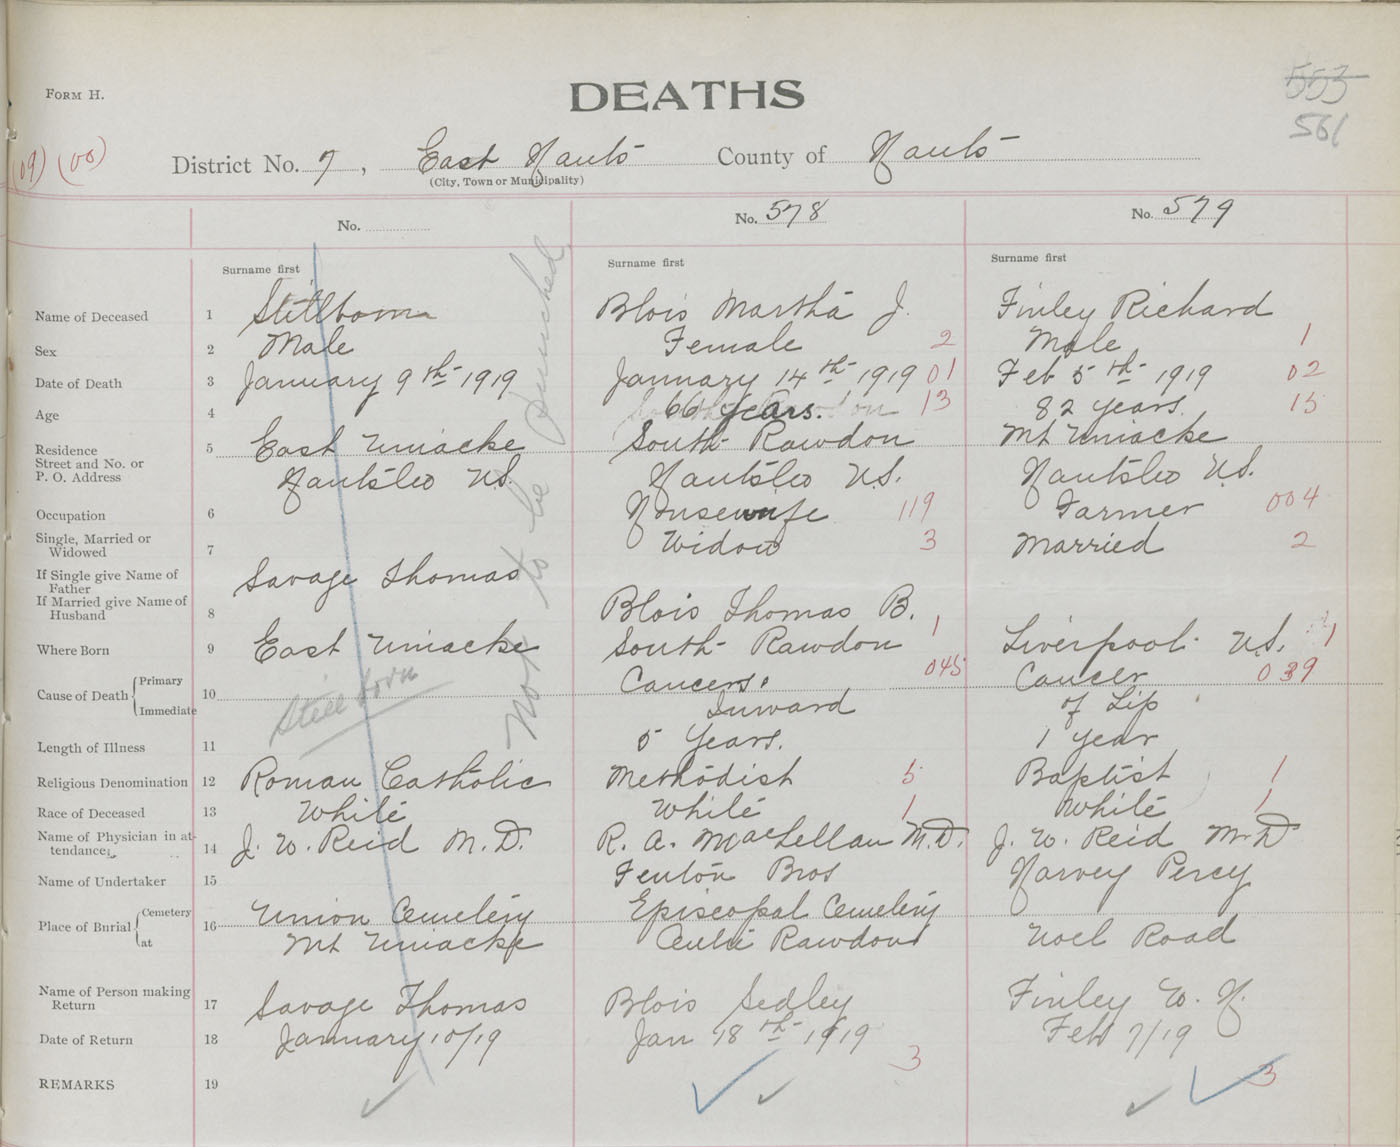 FORM H.
DEATHS
553
561
(09) (00)
District No. 7, East Hants County of Hants
(City, Town or Municipality)
No.
No. 578
No. 579
Surname first
Surname first
Surname first
Name of Deceased 1 Stillborn Blois Martha J. Finley Richard
Sex 2 Male Female 2 Male 1
Date of Death 3 January 9th 1919 January 14th 1919 01 Feb 5th 1919 02
Age 4 66 years. 13 82 years. 15
Residence 5 East Uniacke South Rawdon Mt Uniacke
Street and No. or
P. O. Address Hants Co N.S. Hants Co N.S. Hants Co N.S.
Occupation 6 Housewife 119 Farmer 004
Single, Married or
Widowed 7 Widow 3 Married 2
If Single give Name of
Father Savage Thomas
If Married give Name of
Husband 8 Blois Thomas B.
Where Born 9 East Uniacke South Rawdon 1 Liverpool N.S. 1
Cause of Death Primary 10 Still born Cancers. 045 Cancer 039
Immediate Inward of Lip
Length of Illness 11 5 Years. 1 year
Religious Denomination 12 Roman Catholic Methodist 5 Baptist 1
Race of Deceased 13 White White 1 White 1
Name of Physician in at-
tendance 14 J. W. Reid M.D. R. A. MacLellan M.D. J. W. Reid M.D
Name of Undertaker 15 Fenton Bros Harvey Percy
Place of Burial Cemetery 16 Union Cemetery Episcopal Cemetery
at Mt Uniacke Rawdon Noel Road
Name of Person making
Return 17 Savage Thomas Blois Sedley Finley W. H.
Date of Return 18 January 10/19 Jan 18th 1919 Feb 7/19
3
REMARKS 19 3
Not to be Punched